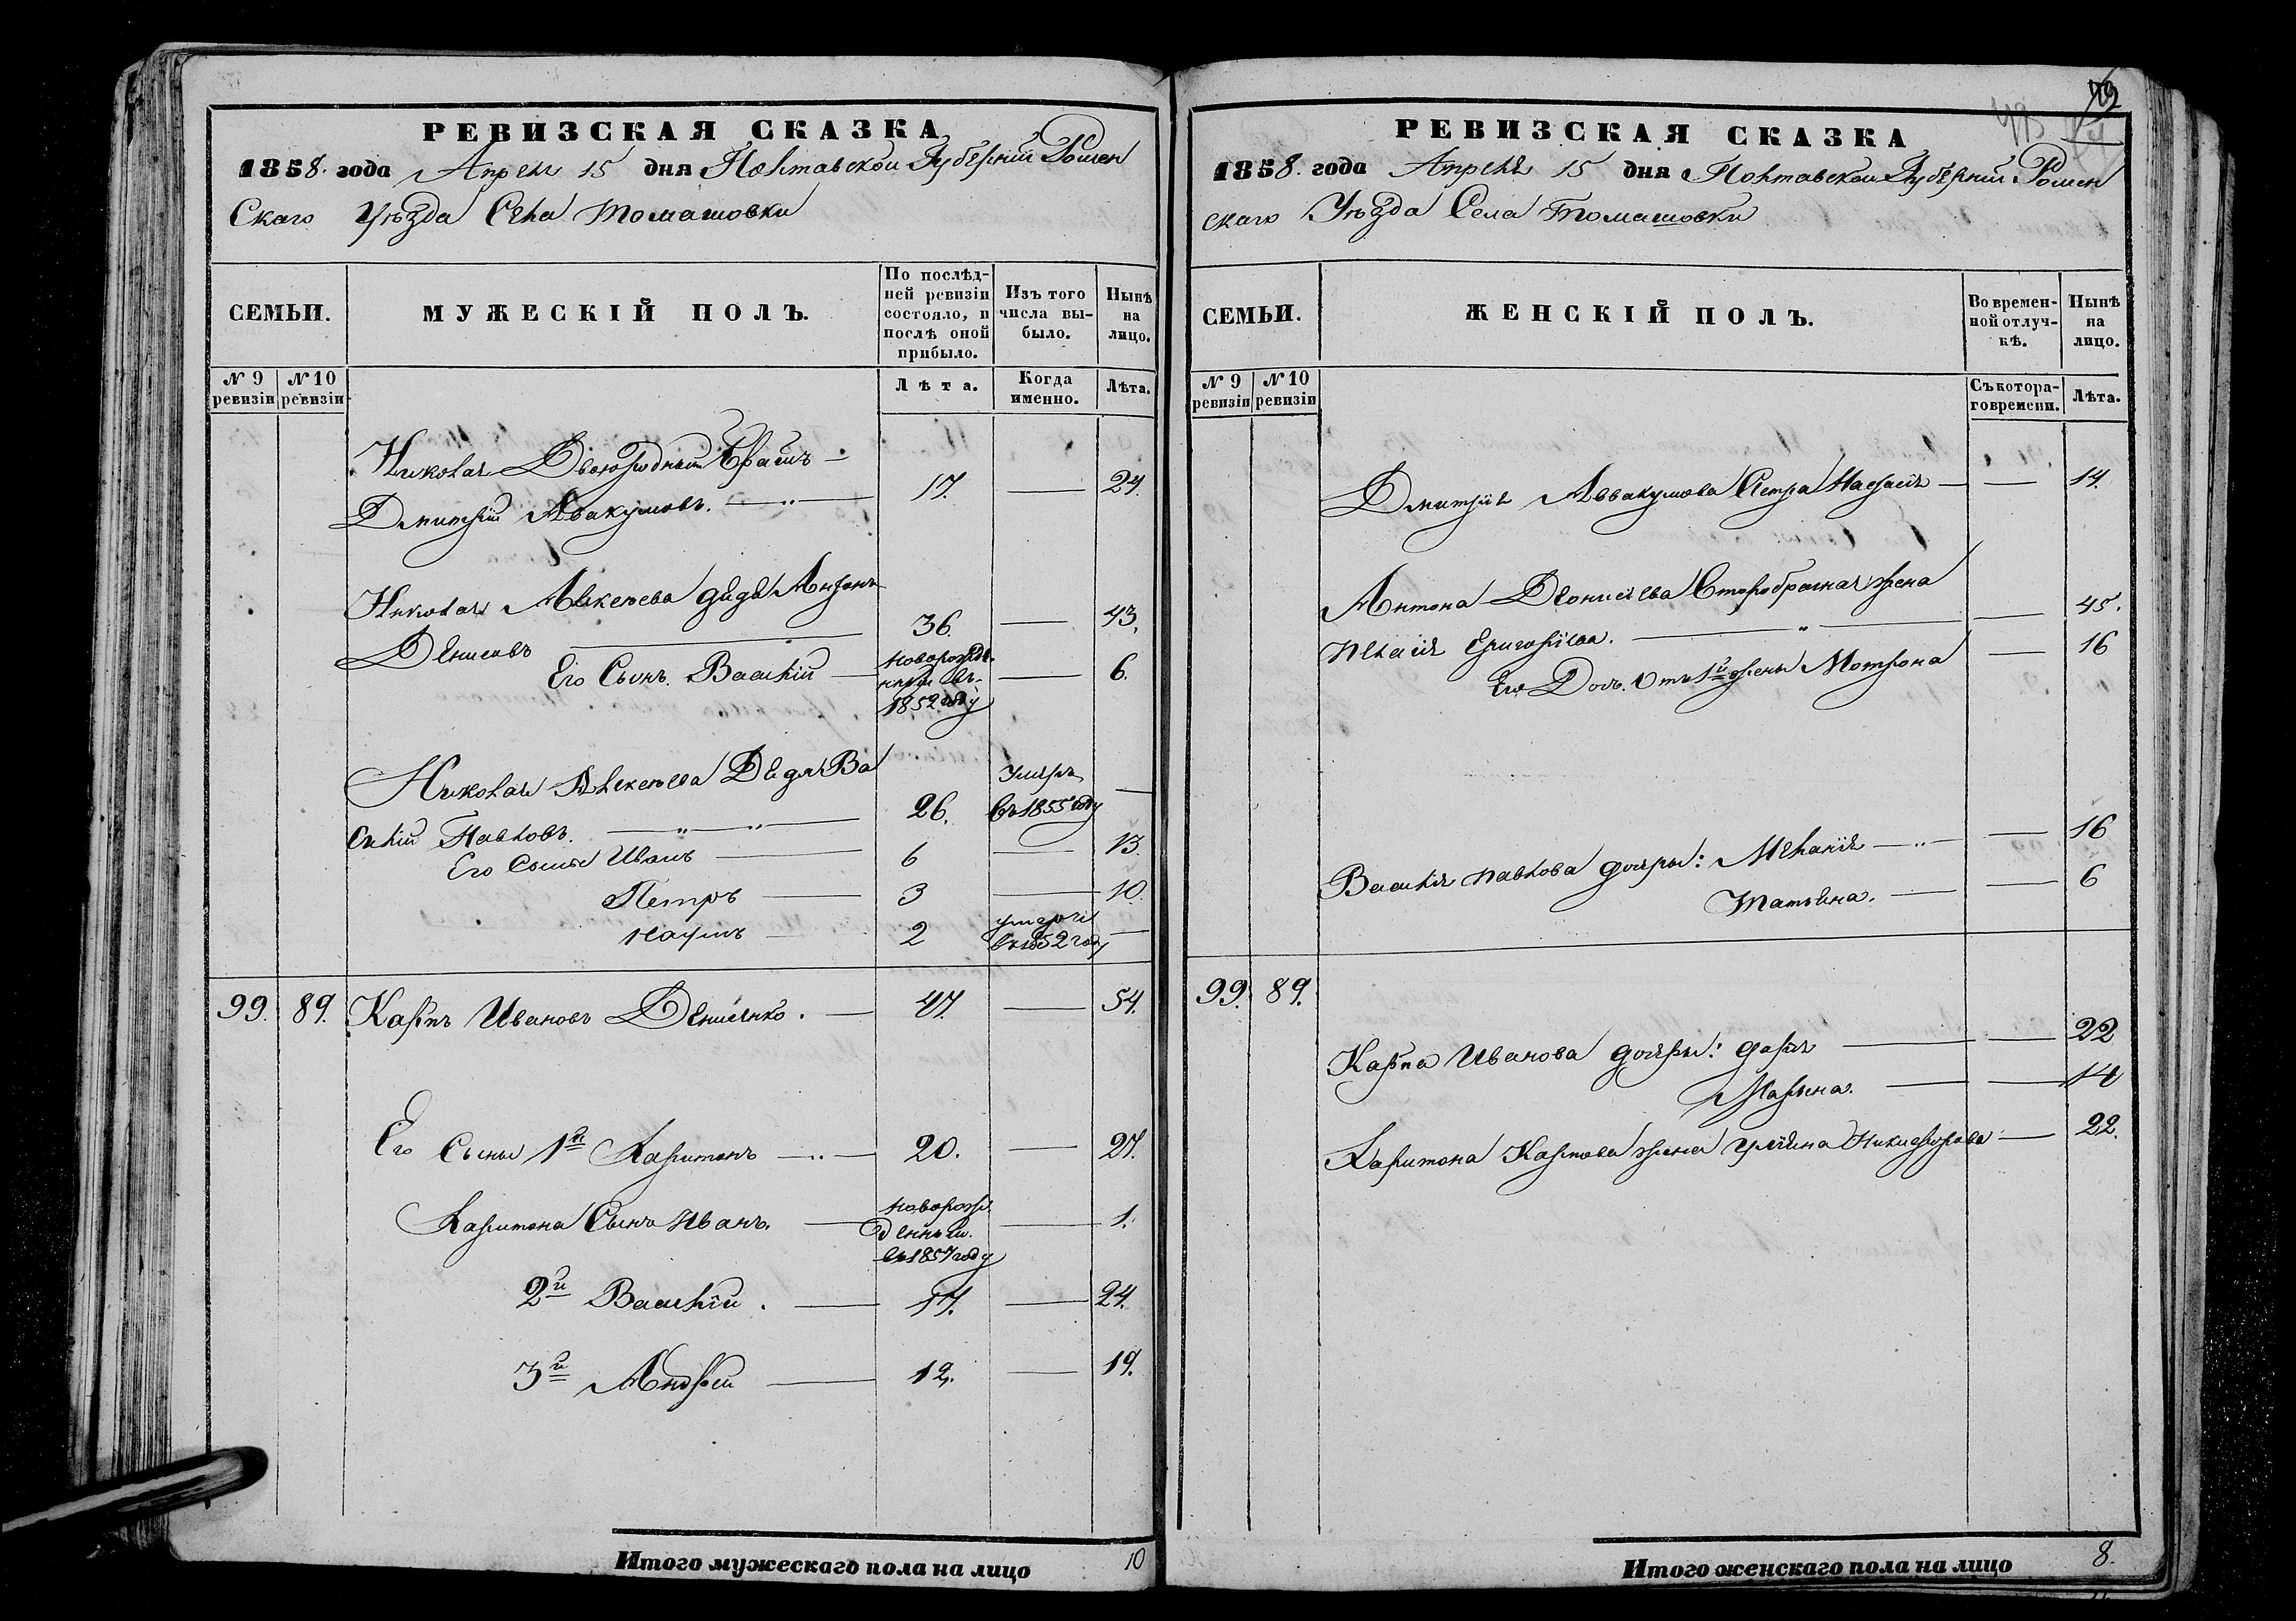 РЕВИЗСКАЯ СКАЗКА
1858. года Апреля 15 дня Полтавской Губерніи Ромен
Скаго Уѣзда Села Томашовки
СЕМЬИ.
МУЖЕСКІЙ ПОЛЪ.
По послѣд-
ней ревизіи
состояло, и
послѣ оной
прибыло.
Изъ того
числа вы-
было.
Нынѣ
на
лицо.
№ 9
ревизіи
№ 10
ревизіи
Лѣта.
Когда
именно.
Лѣта.
Николая Двоюродный Братъ
Дмитрій Авакумовъ. 17. 24.
Николая Алексѣева дядя Антонъ
Денисовъ 36. 43.
Его Сынъ. Василій новорожде-
нный въ
1852 году 6.
Николая Алексѣева Дядя Ва
силій Павловъ. 26. умеръ
въ 1855 году
Его Сыны Иванъ 6 13.
Петръ 3 10.
Наумъ 2 умеръ
въ 1852 году
99. 89. Карпъ Ивановъ Денисенко. 47. 54.
Его Сыны 1й Харитонъ 20. 27.
Харитона Сынъ Иванъ. новорож
денный.
въ 1857 году 1.
2й Василій. 17. 24.
3й Андрей 12. 19.
Итого мужескаго пола на лицо 10
РЕВИЗСКАЯ СКАЗКА
1858. года Апреля 15 дня Полтавской Губерніи Ромен
скаго Уѣзда Села Томашовки
СЕМЬИ.
ЖЕНСКІЙ ПОЛЪ.
Во времен-
ной отлуч-
кѣ.
Нынѣ
на
лицо.
№ 9
ревизіи
№ 10
ревизіи
Съ котора-
го времени.
Лѣта.
Дмитрія Аввакумова Сестра 14.
Антона Деонисіева Второбрачная жена
Григоріева. 45.
Его Дочь. Отъ 1й жены Мотрона 16
Василія Павлова дочери: Меланія 16
Татьяна. 6
99. 89.
Карпа Иванова дочери: Дарья 22
Марьина. 14
Харитона Карпова жена Никифорова 22.
Итого женскаго пола на лицо 8.